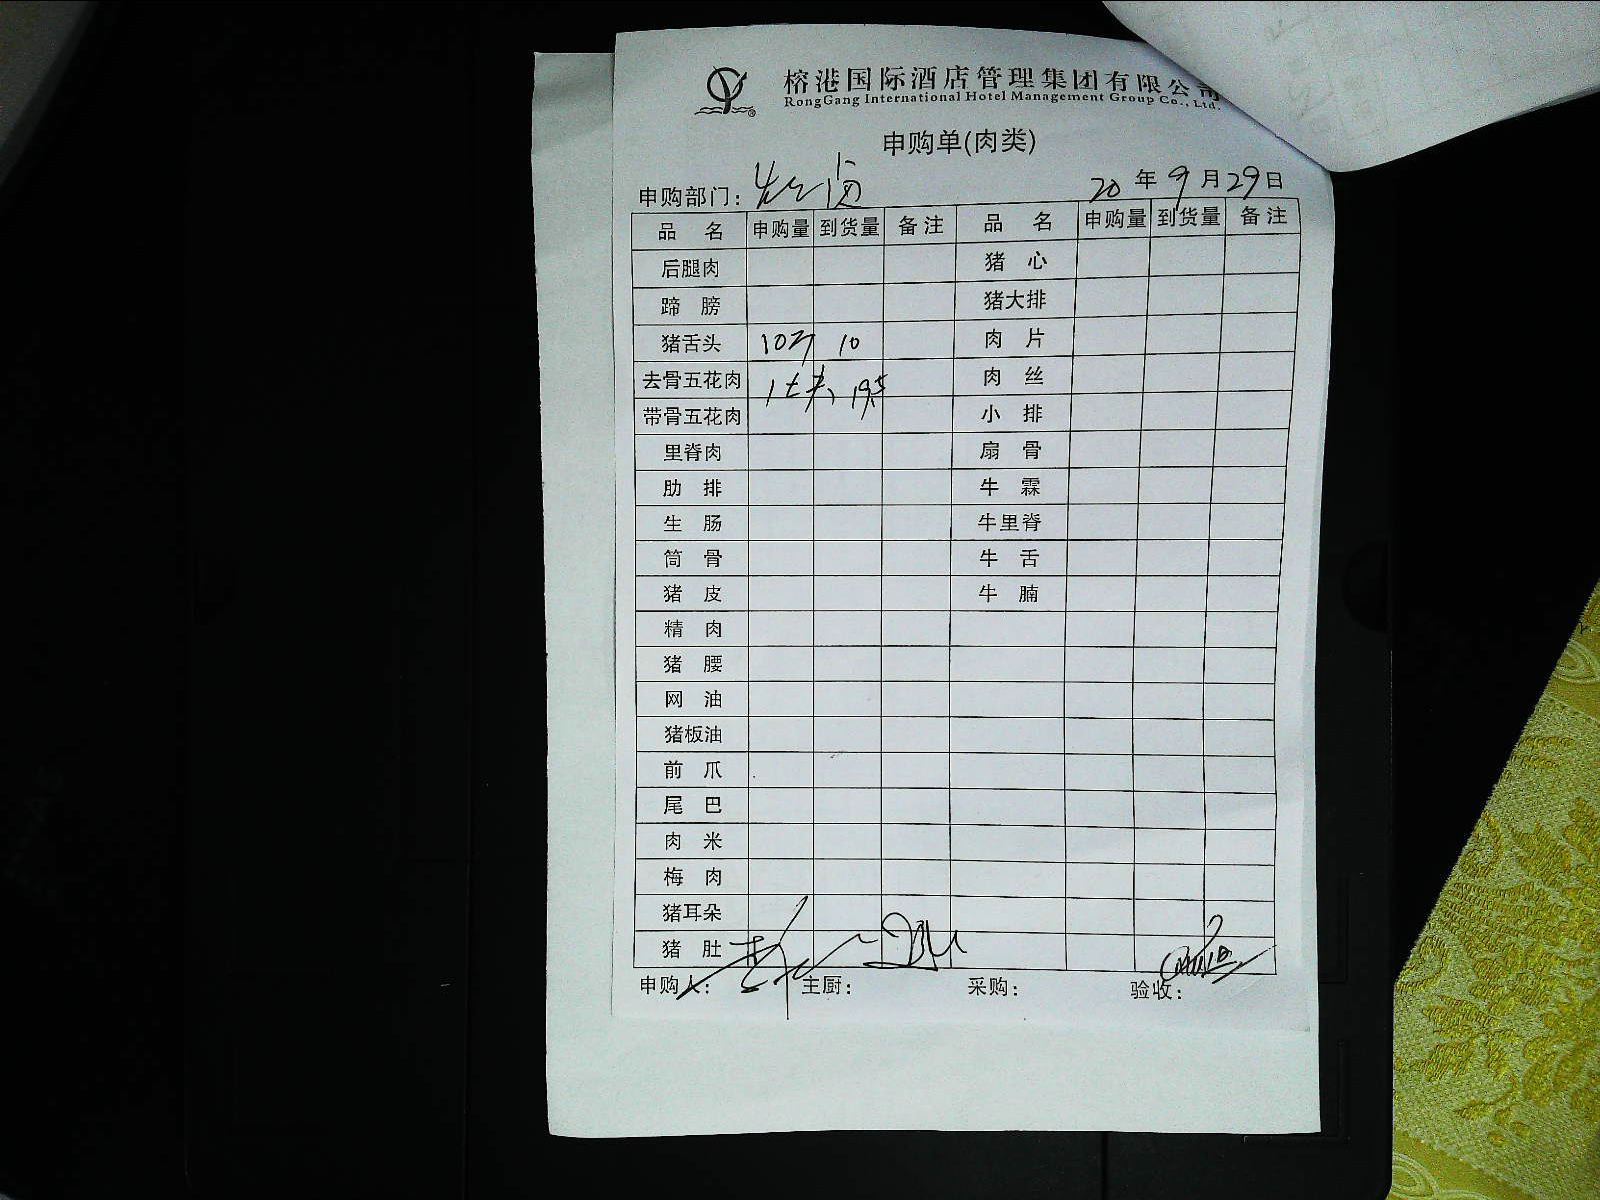 榕港国际酒店管理集团有限公司
RongGang International Hotel Management Group Co., Ltd.
申购单(肉类)
申购部门： 20年9月29日
品 名 申购量 到货量 备注 品 名 申购量 到货量 备注
后腿肉 猪 心
蹄 膀 猪大排
猪舌头 10 10 肉 片
去骨五花肉 肉 丝
带骨五花肉 小 排
里脊肉 扇 骨
肋 排 牛 霖
生 肠 牛里脊
筒 骨 牛 舌
猪 皮 牛 腩
精 肉
猪 腰
网 油
猪板油
前 爪
尾 巴
肉 米
梅 肉
猪耳朵
猪 肚
申购人： 主厨： 采购： 验收：